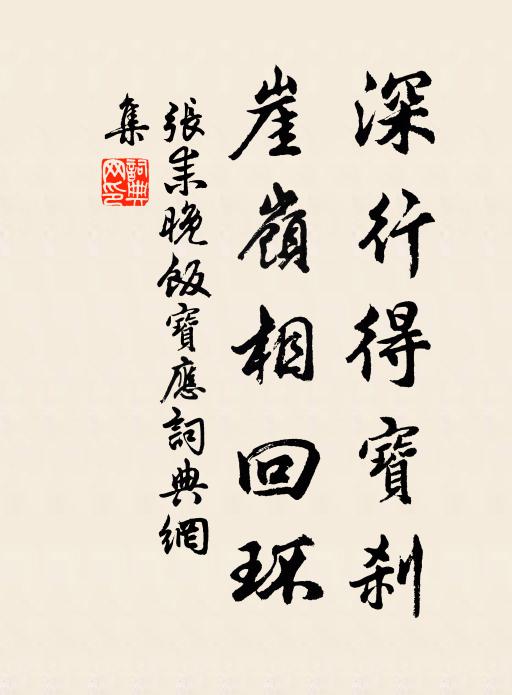 深行得寶刹
崖嶺相回环
張耒晚飯寶應詞典網
集
詞典網印